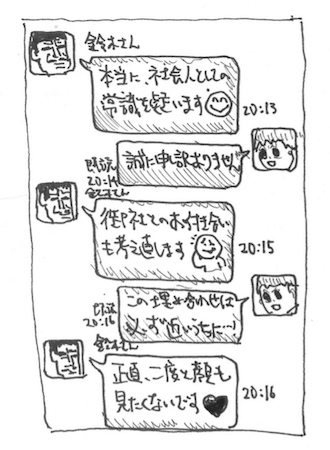 鈴木さん
本当に、社会人としての
常識を疑います
20:13
誠に申し訳ありません
既読
20:14
鈴木さん
御社とのお付き合い
も考え直します
20:15
この埋め合わせは
必ず近いうちに…!
既読
20:16
鈴木さん
正直、二度と顔も
見たくないです
20:16